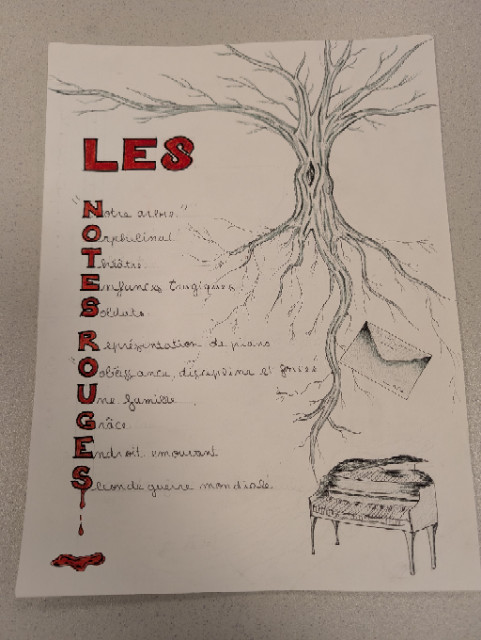 LES
"Notre arbre"
Orphelinat
Théâtre
Enfances tragiques
Soldats
Représentation de piano
Obéissance, discipline et force
Une famille
Grâce
Endroit émouvant
Seconde guerre mondiale